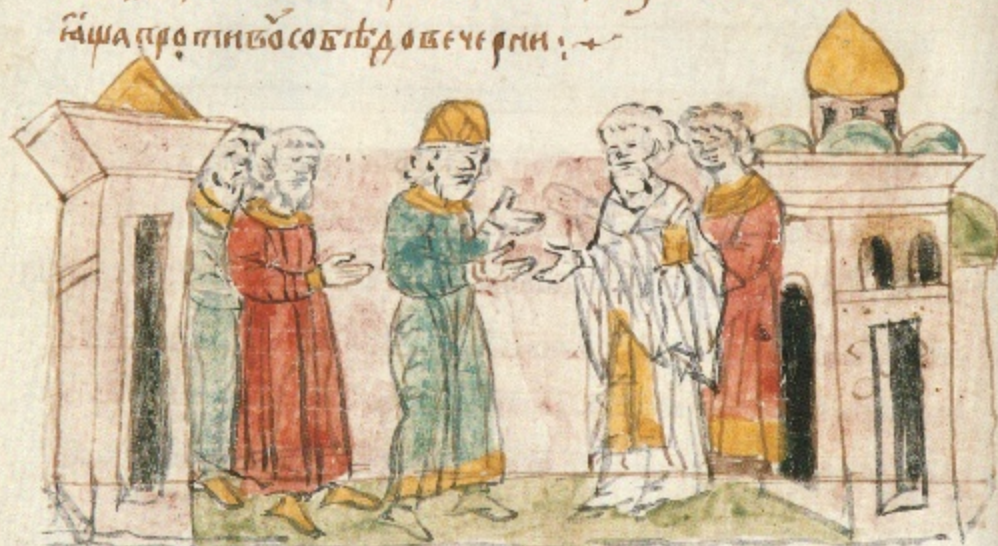 ꙗшапротивоусобѣдовечерни: